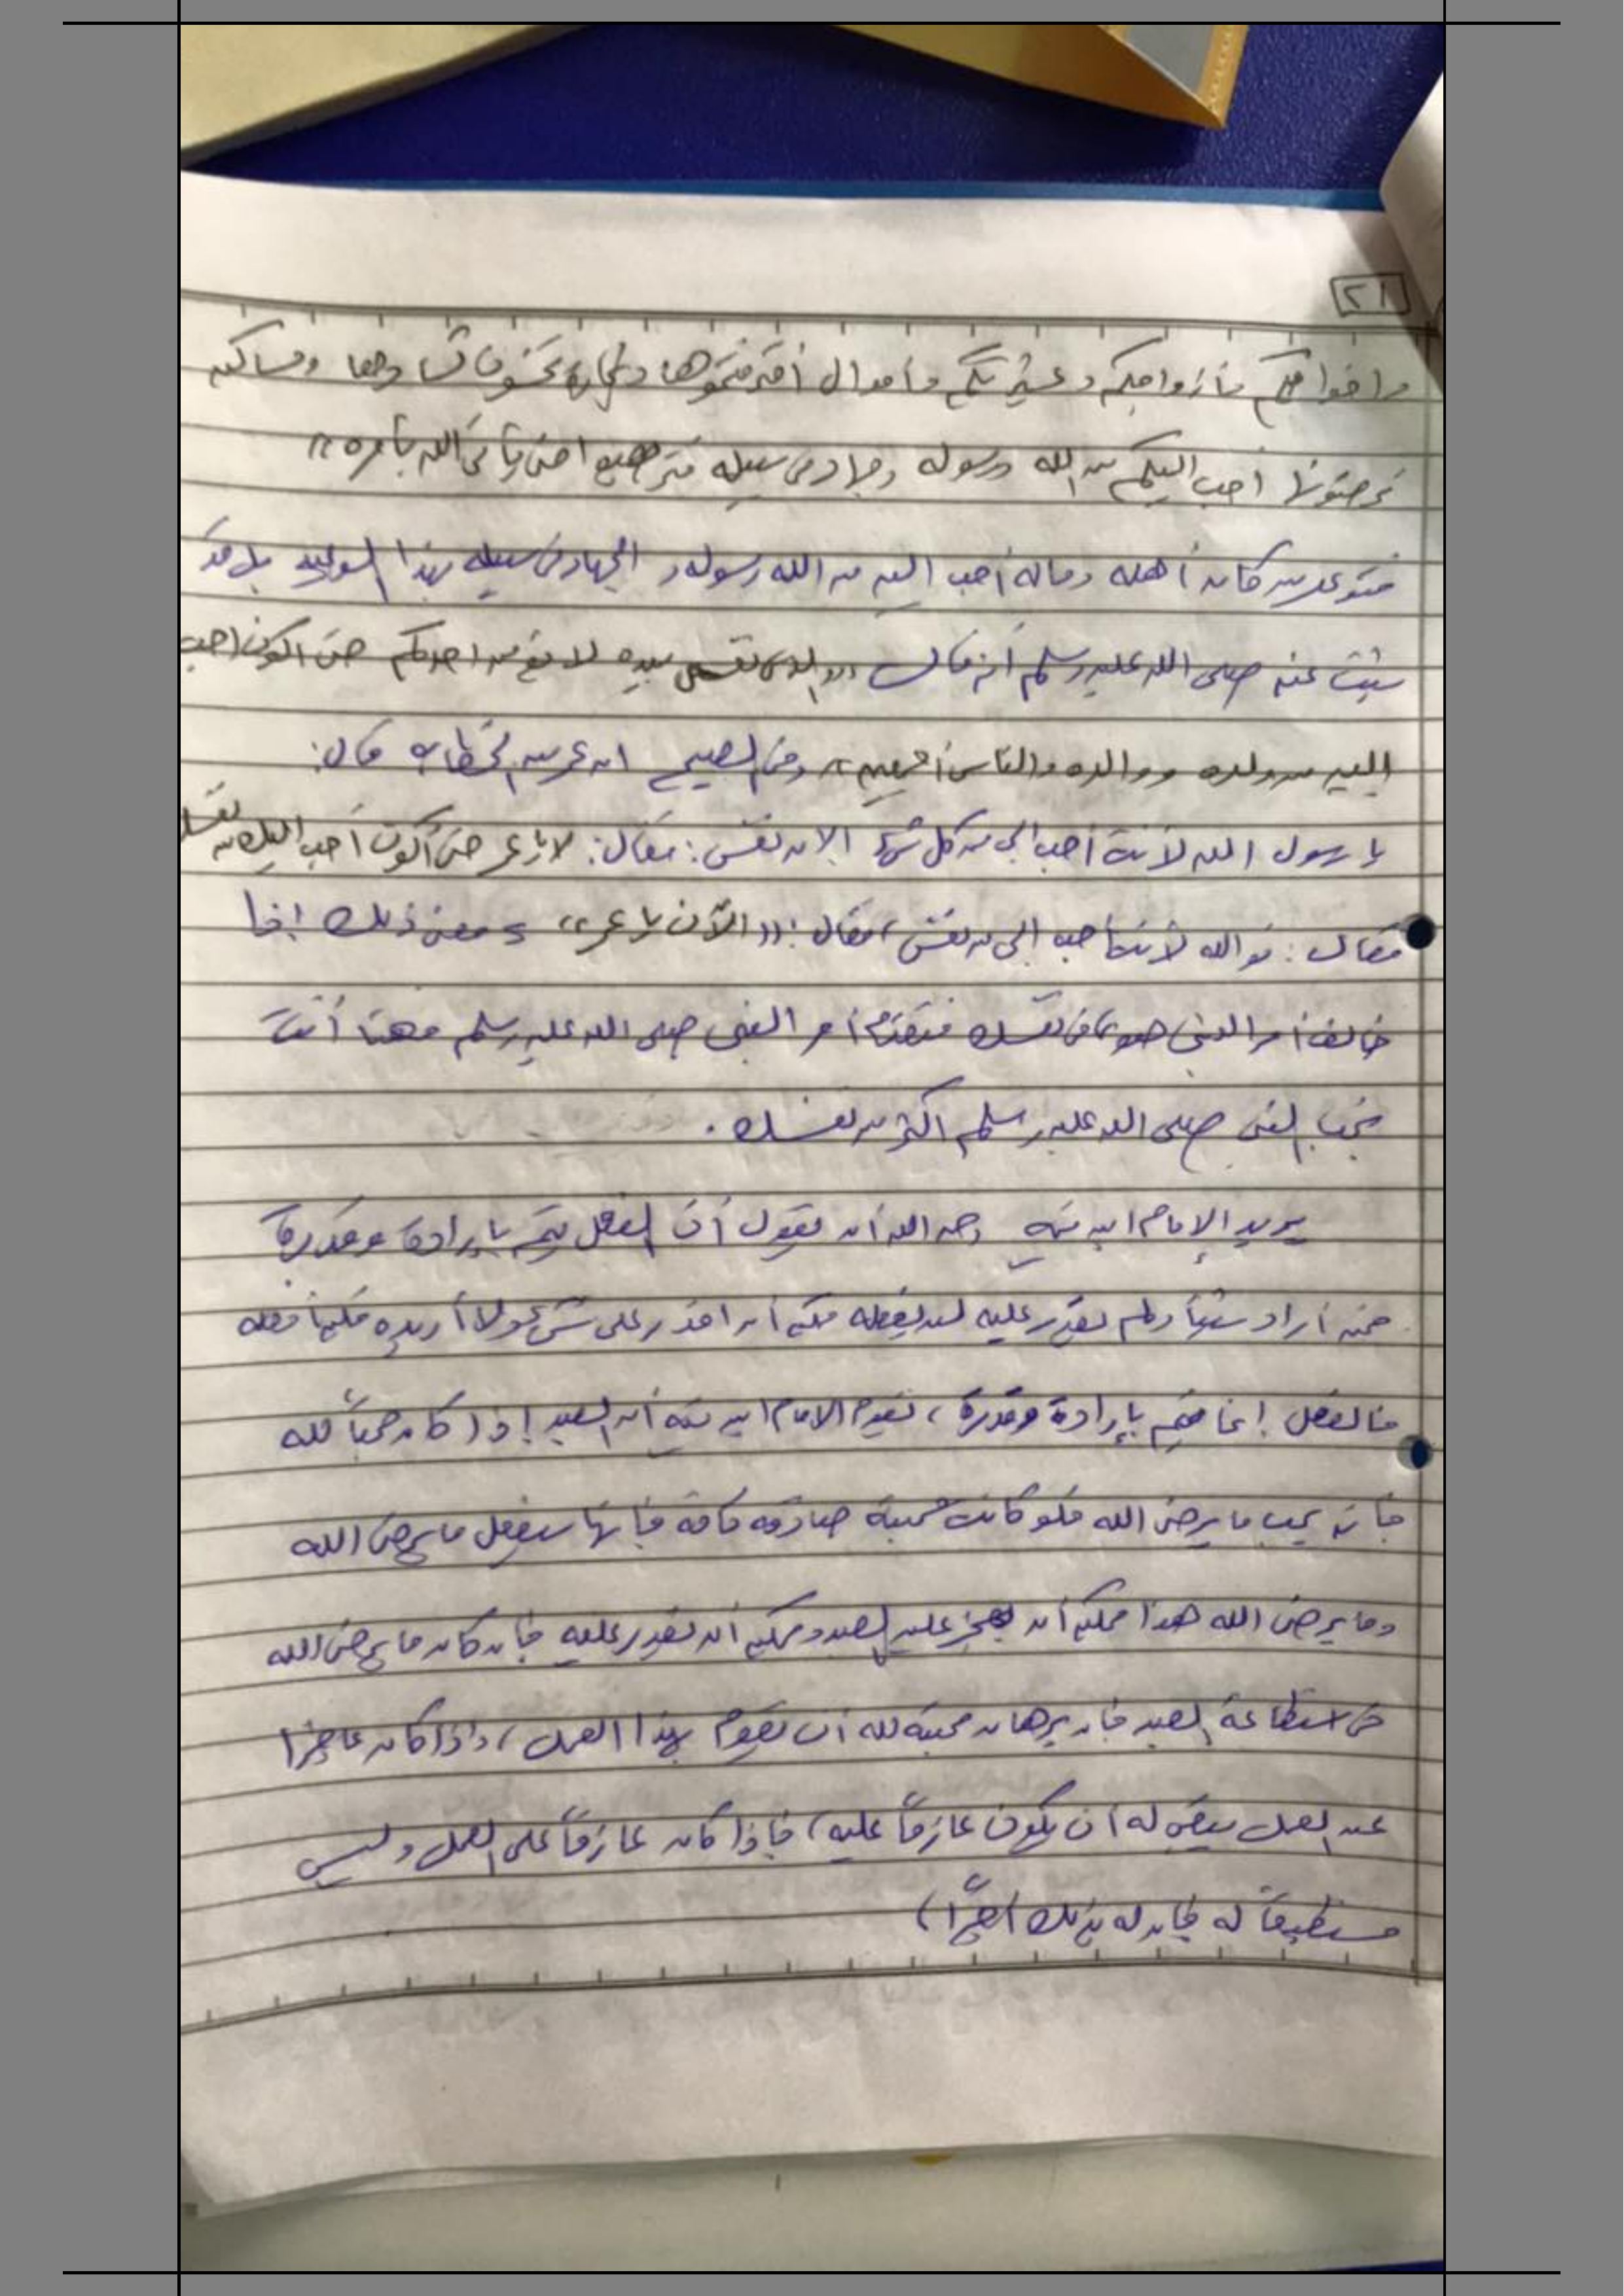 ٢١
وإخوانكم وأزواجكم وعشيرتكم وأموال اقترفتموها وتجارة تخشون كسادها ومساكن
ترضونها أحب إليكم من الله ورسوله وجهاد في سبيله فتربصوا حتى يأتي الله بأمره))
فتوعد من كان أهله وماله أحب إليه من الله ورسوله والجهاد في سبيله بهذا الوعيد بل قد
ثبت عنه صلى الله عليه وسلم أنه قال ((والذي نفسي بيده لا يؤمن أحدكم حتى أكون أحب
إليه من ولده ووالده والناس أجمعين)) وفي الصحيح ان عمر بن الخطاب قال:
يا رسول الله لأنت أحب إلي من كل شيء إلا من نفسي: فقال: لا يا عمر حتى أكون أحب اليك من نفسك
فقال: فوالله لأنت أحب إلي من نفسي، فقال: ((الآن يا عمر)) ومعنى ذلك إذا
خالف أمر النبي هوى في نفسك فتقدم أمر النبي صلى الله عليه وسلم فهنا أنت
تحب النبي صلى الله عليه وسلم أكثر من نفسك.
يريد الإمام ابن تيمية رحمه الله أن يقول أن الفعل يتم بإرادة وقدرة
فمن أراد شيئاً ولم يقدر عليه لن يفعله ممكن أن اقدر على شيء ولا أريده فلن أفعله
فالفعل إنما يتم بإرادة وقدرة، يقول الامام ابن تيمية أن العبد إذا كان محباً لله
فإنه يحب ما يرضي الله فلو كانت محبة صادقة كافة فإنها ستفعل ما يرضي الله
وما يرضي الله هذا ممكن أن يعجز عليه العبد وممكن أن يقدر عليه فإن كان ما يرضي الله
في استطاعة العبد فإن برهان محبته لله أن يقوم بهذا العمل، وإذا كان عاجزا
عن العمل يبقى له أن يكون عازماً عليه، فإذا كان عازماً على العمل وليس
مستطيعاً له فإن له بذلك أجراً)